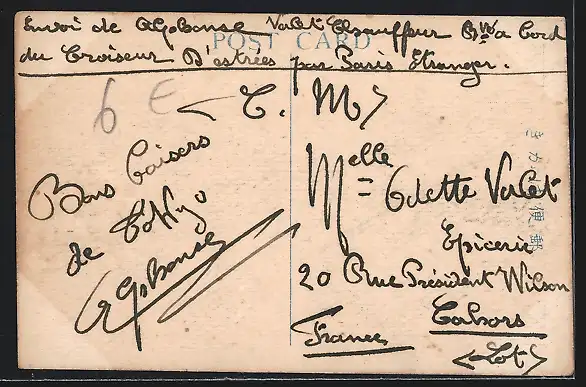 Envoi de Alphonse Valet Chauffeur Bvé a bord
POST CARD
du Croiseur D'estrées par Paris Etranger.
6 €
T. M>
Bons baisers
de Tokyo
Alphonse
Melle
= Odette Valet
Epicerie
20 Rue Président Wilson
Cahors
France
<Lot>
きかは便郵